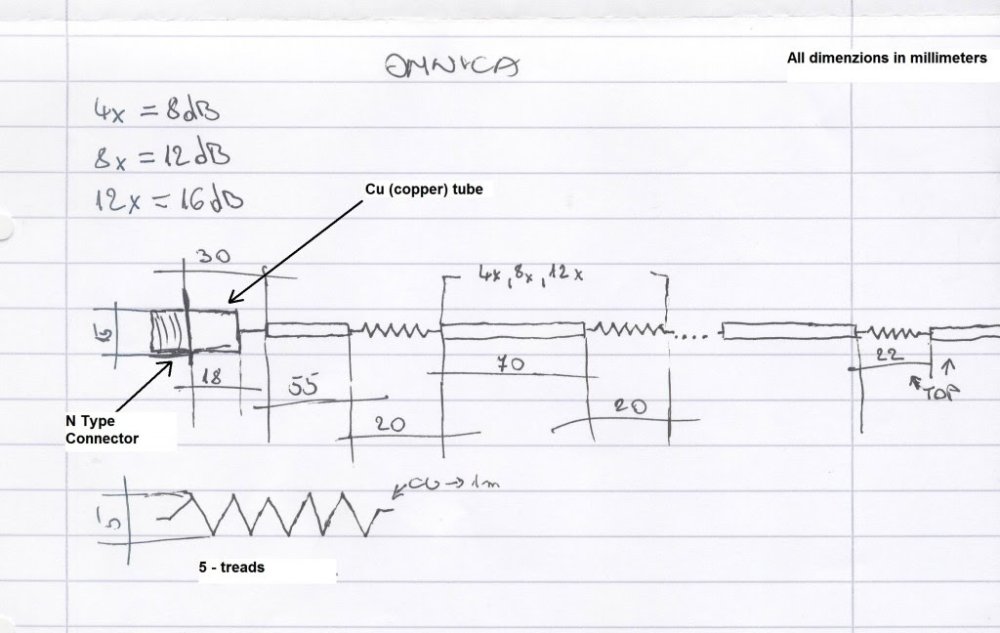 OMNICA
All dimenzions in millimeters
4x = 8dB
8x = 12dB
12x = 16dB
Cu (copper) tube
30
4x, 8x, 12x
18
55
20
70
20
22
TOP
N Type
Connector
5
CU → 1m
5 - treads